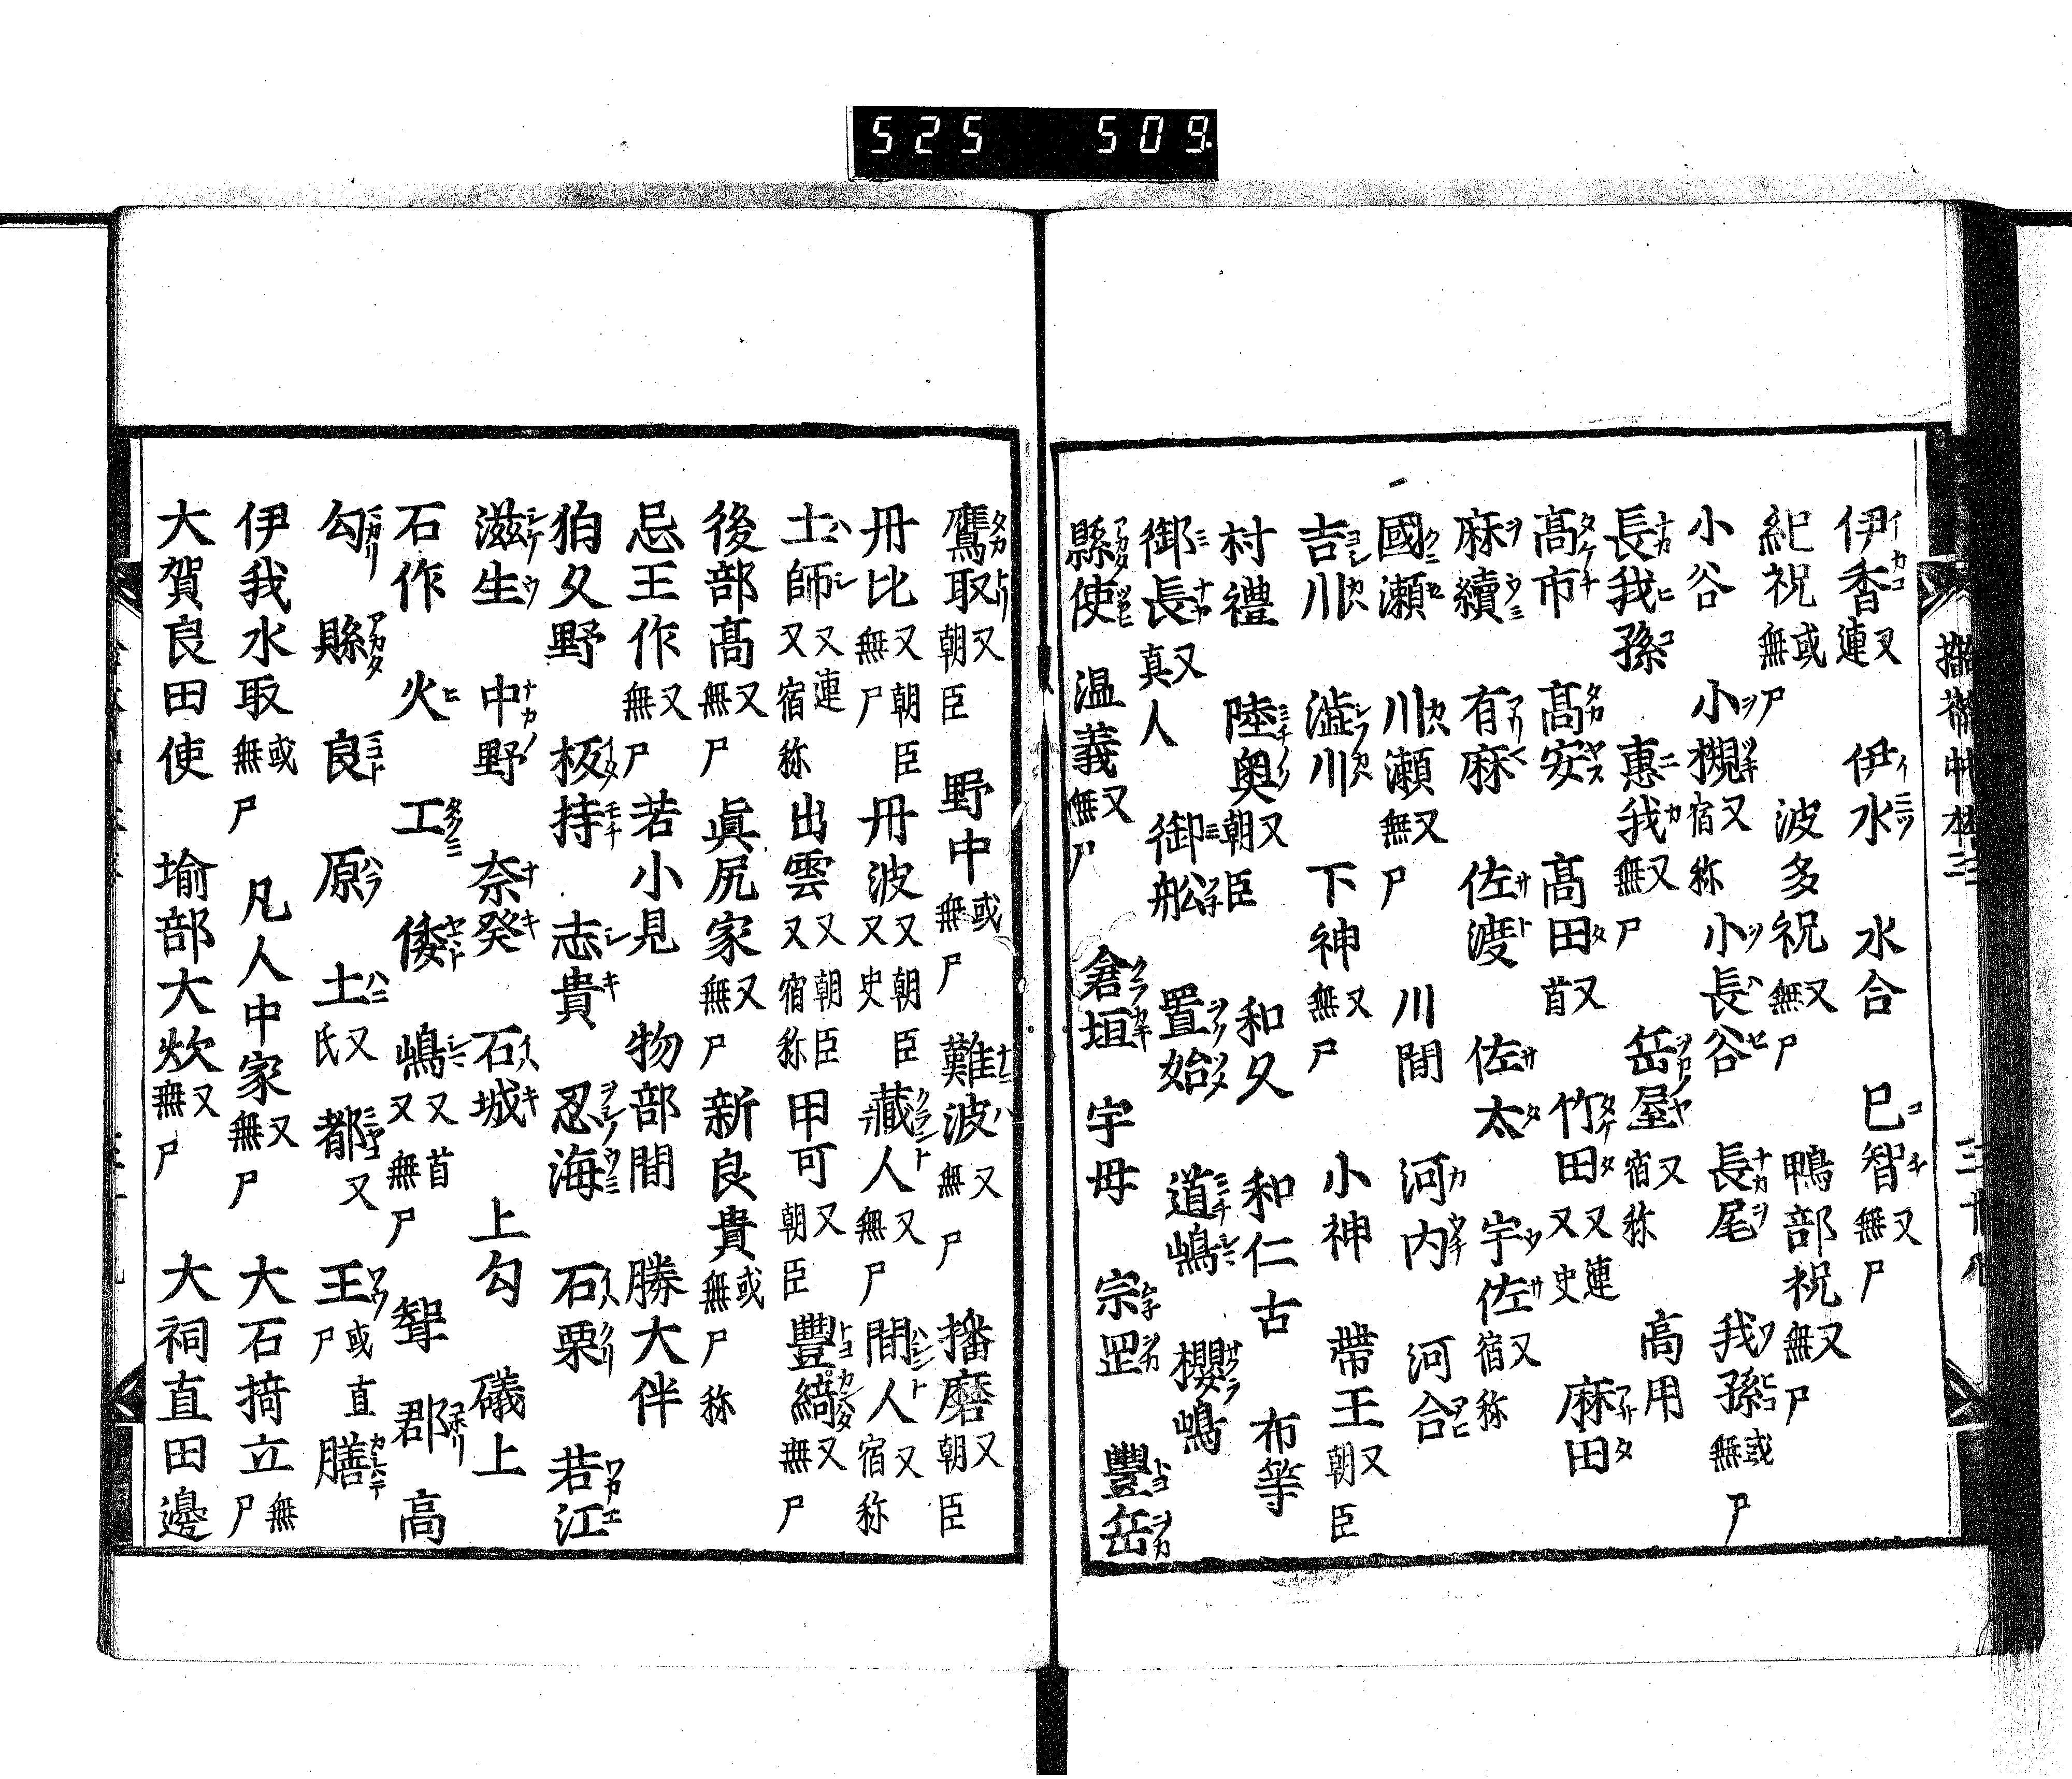 525 509.
伊香又連 伊水 水合 巳智又無尸
紀祝或無尸 波多祝又無尸 鴨部祝又無尸
小谷 小槻又宿祢 小長谷 長尾 我孫或無尸
長我孫 惠我又無尸 岳屋又宿祢 高用
髙市 髙安 髙田又首 竹田又連又史 麻田
麻續 有麻 佐渡 佐太 宇佐又宿祢
國瀬 川瀬又無尸 川間 河内 河合
吉川 澁川 下神又無尸 小神 帶王又朝臣
村禮 陸奥又朝臣 和久 和仁古 布等
御長又真人 御舩 置始 道嶋 櫻嶋
縣使 温義又無尸 倉垣 宇母 宗罡 豐岳
鷹取又朝臣 野中或無尸 難波又無尸 播磨又朝臣
丹比又朝臣無尸 丹波又朝臣又史 藏人又無尸 間人又宿祢
土師又連又宿祢 出雲又朝臣又宿祢 甲可又朝臣 豐綺又無尸
後部髙又無尸 眞尻家又無尸 新良貴或無尸祢
忌王作又無尸 若小見 物部間 勝大伴
狛久野 板持 志貴 忍海 石栗 若江
滋生 中野 奈癸 石城 上勾 礒上
石作 火 工 倭 嶋又首又無尸 聟 郡 高
勾 縣 良 原 土又氏 都又 王或直尸 膳
伊我水取或無尸 凡人中家又無尸 大石掎立無尸
大賀良田使 堬部大炊又無尸 大祠直田邊